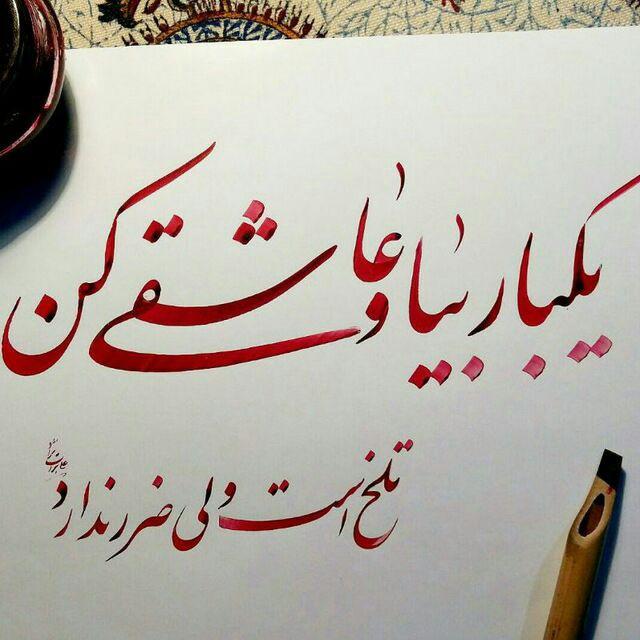 یکبار بیا و عاشقی کن
تلخ است ولی ضرر ندارد